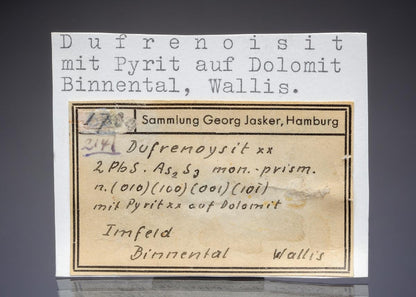 Dufrenoisit
mit Pyrit auf Dolomit
Binnental, Wallis.
Sammlung Georg Jasker, Hamburg
214
Dufrenoysit xx
2 PbS. As₂S₃ mon.-prism.
n. (010)(100)(001)(101)
mit Pyrit xx auf Dolomit
Imfeld
Binnental Wallis